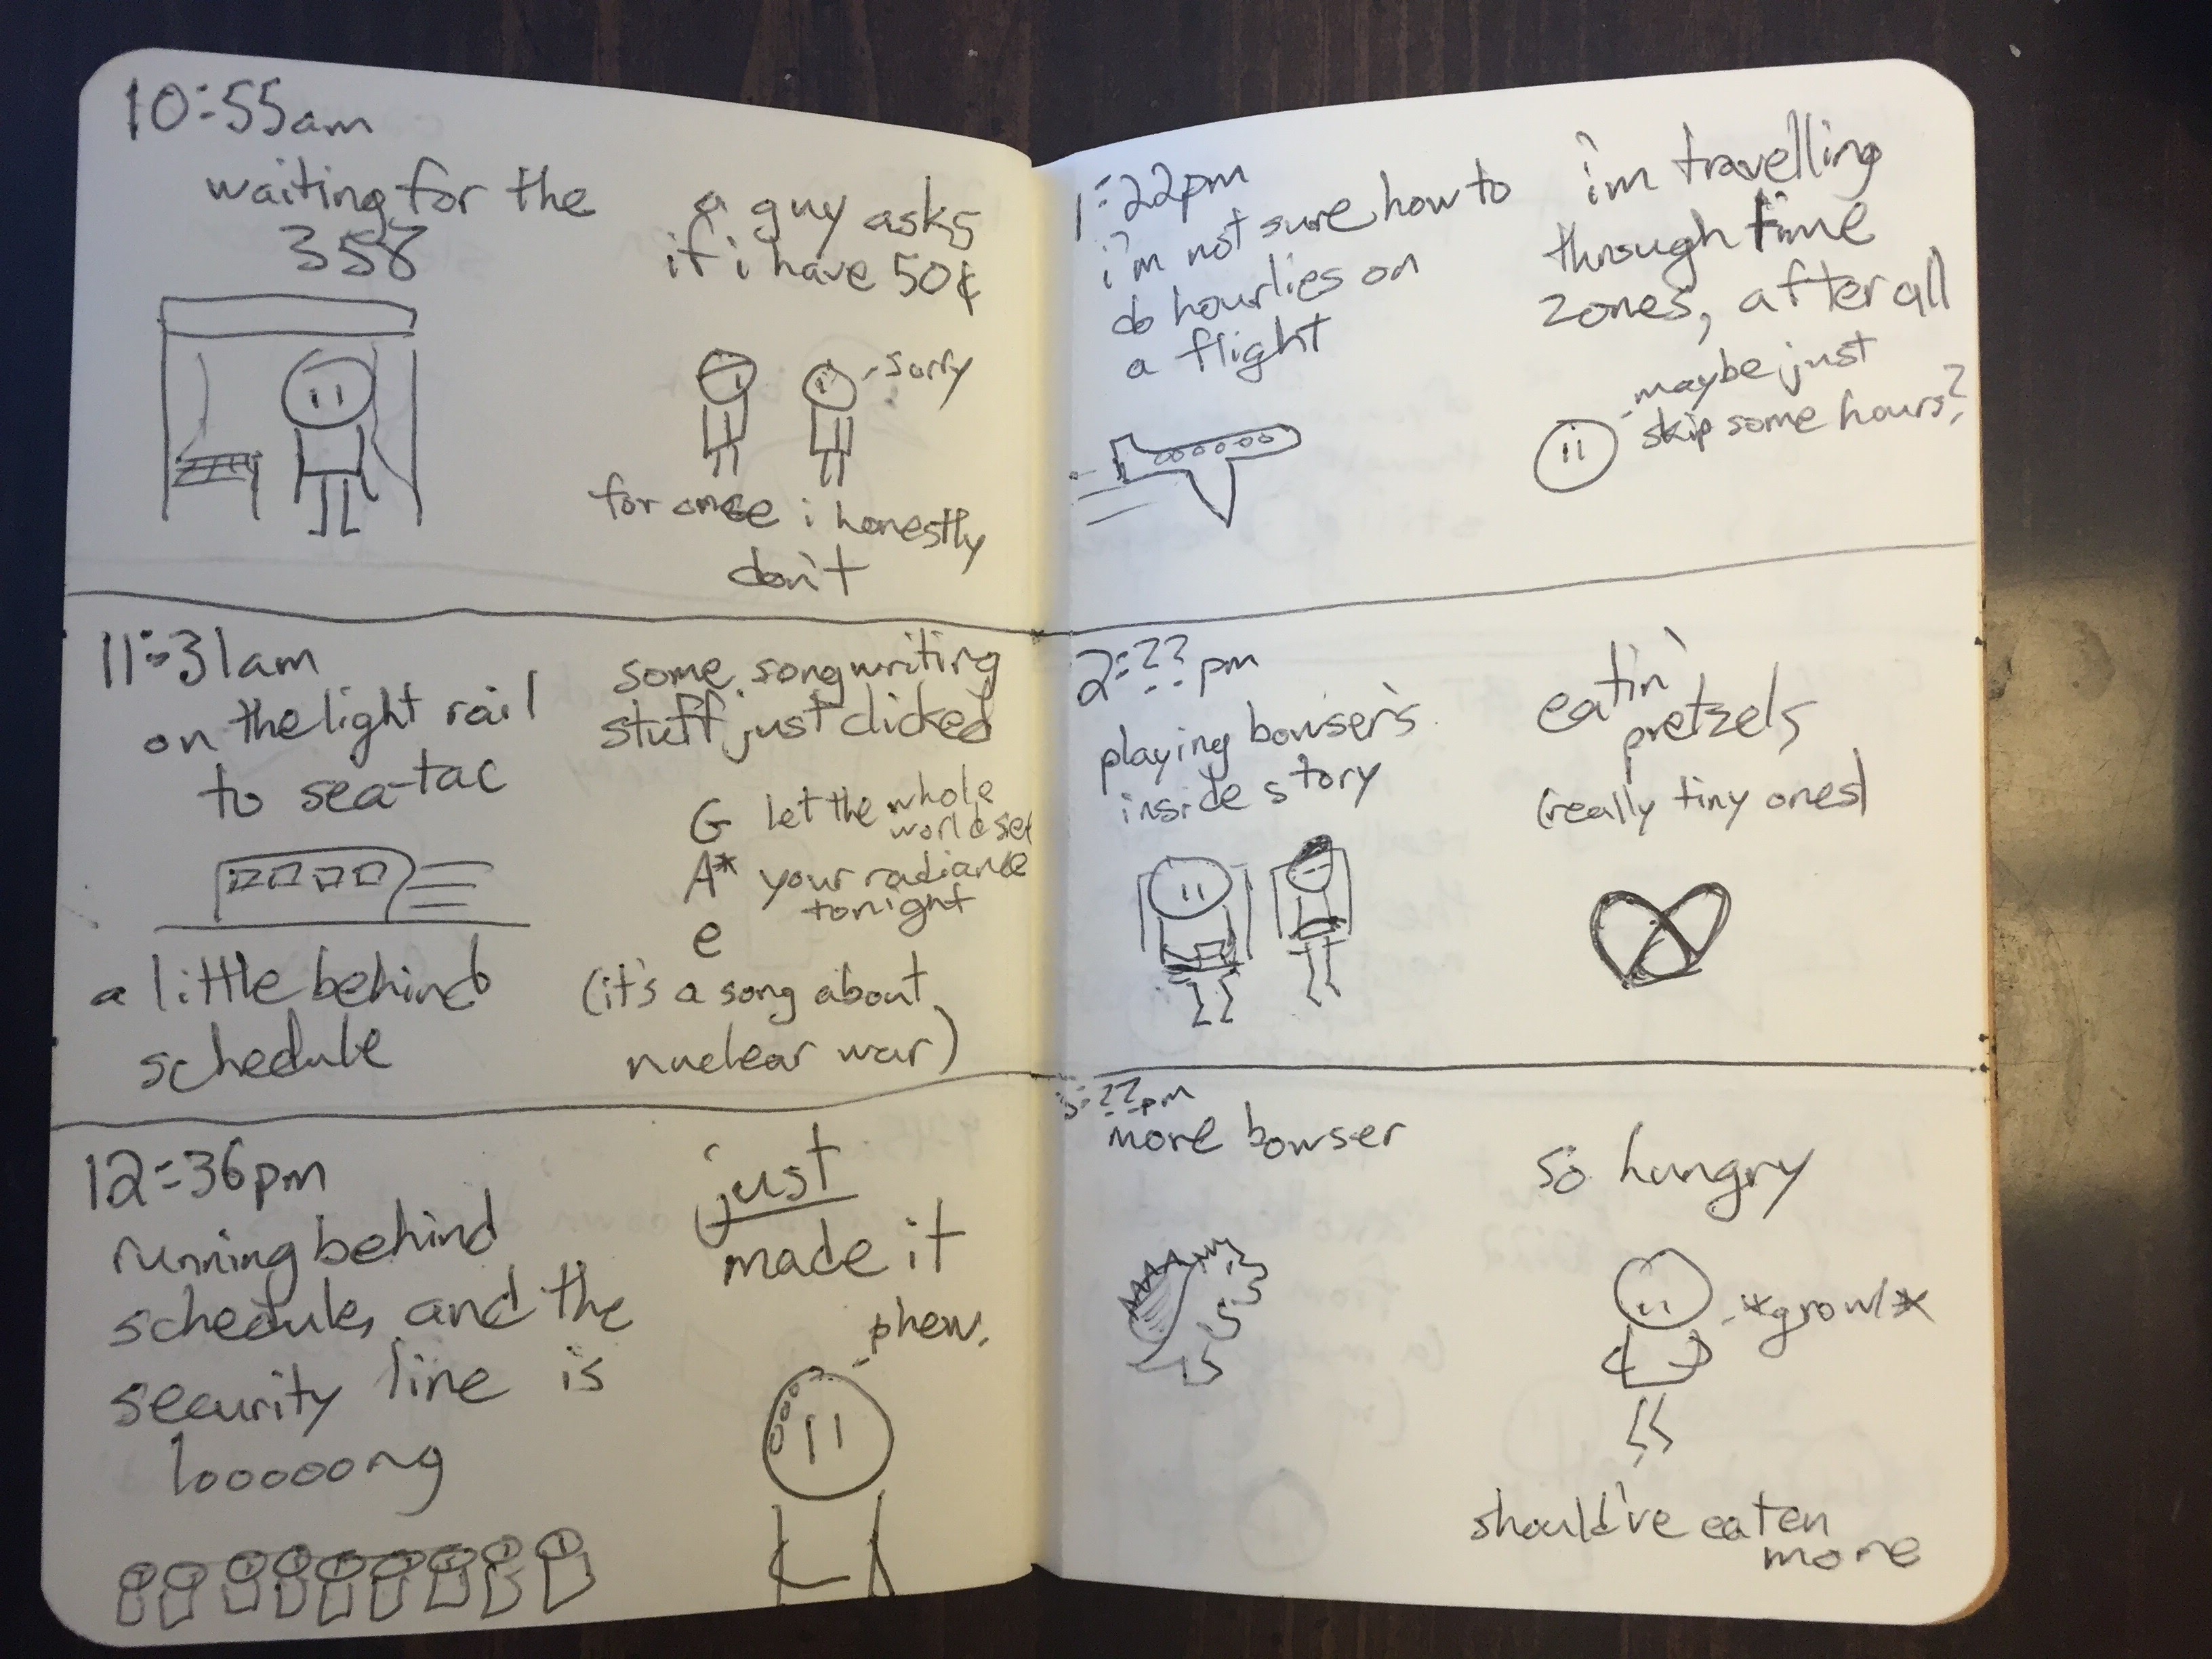 10:55am
waiting for the
358
a guy asks
if i have 50¢
sorry
for once i honestly
don't
11:31am
on the light rail
to sea-tac
a little behind
schedule
some songwriting
stuff just clicked
G let the whole
world see
A* your radiance
tonight
e
(it's a song about
nuclear war)
12:36pm
running behind
schedule, and the
security line is
looooong
just
made it
phew.
1:22pm
i'm not sure how to
do hourlies on
a flight
i'm travelling
through time
zones, after all
maybe just
skip some hours?
2:??pm
playing bowser's
inside story
eatin'
pretzels
(really tiny ones)
3:??pm
more bowser
so hungry
*growl*
should've eaten
more